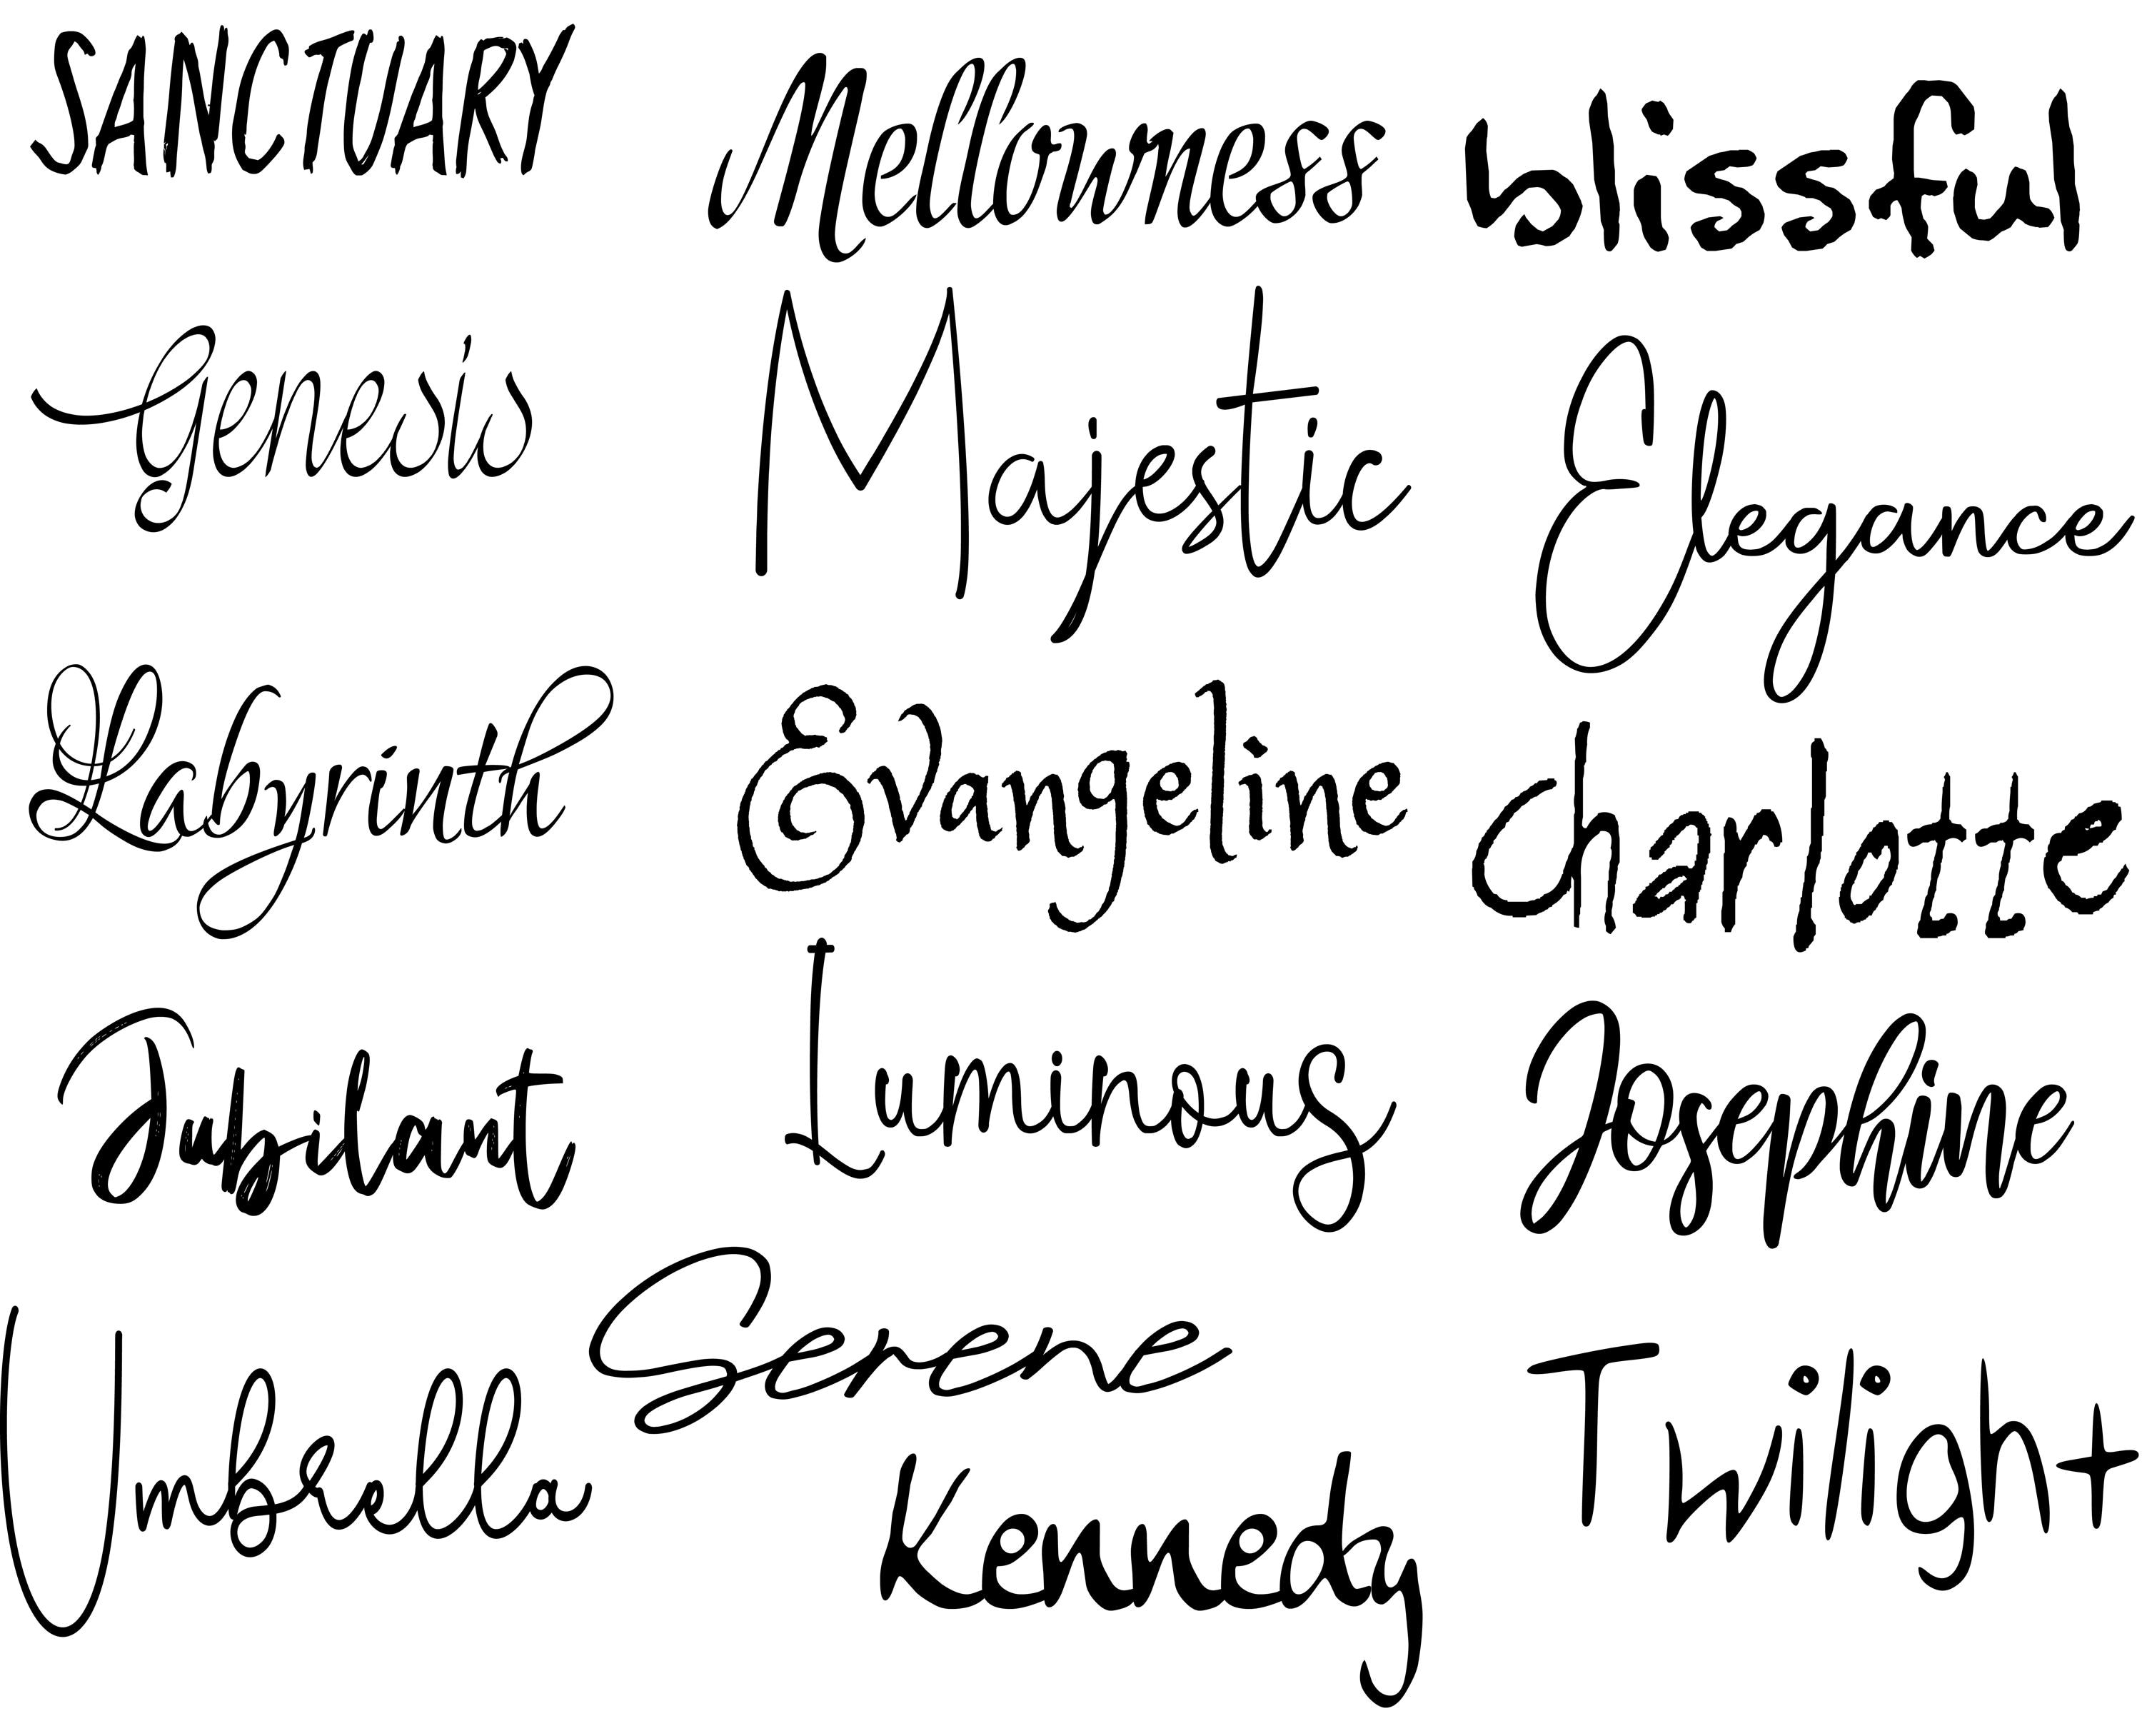 SANCTUARY
Mellowness
blissful
Genesis
Majestic
Elegance
Labyrinth
Evangeline
Charlotte
Jubilant
Luminous
Josephine
Umbrella
Serene
Twilight
Kennedy